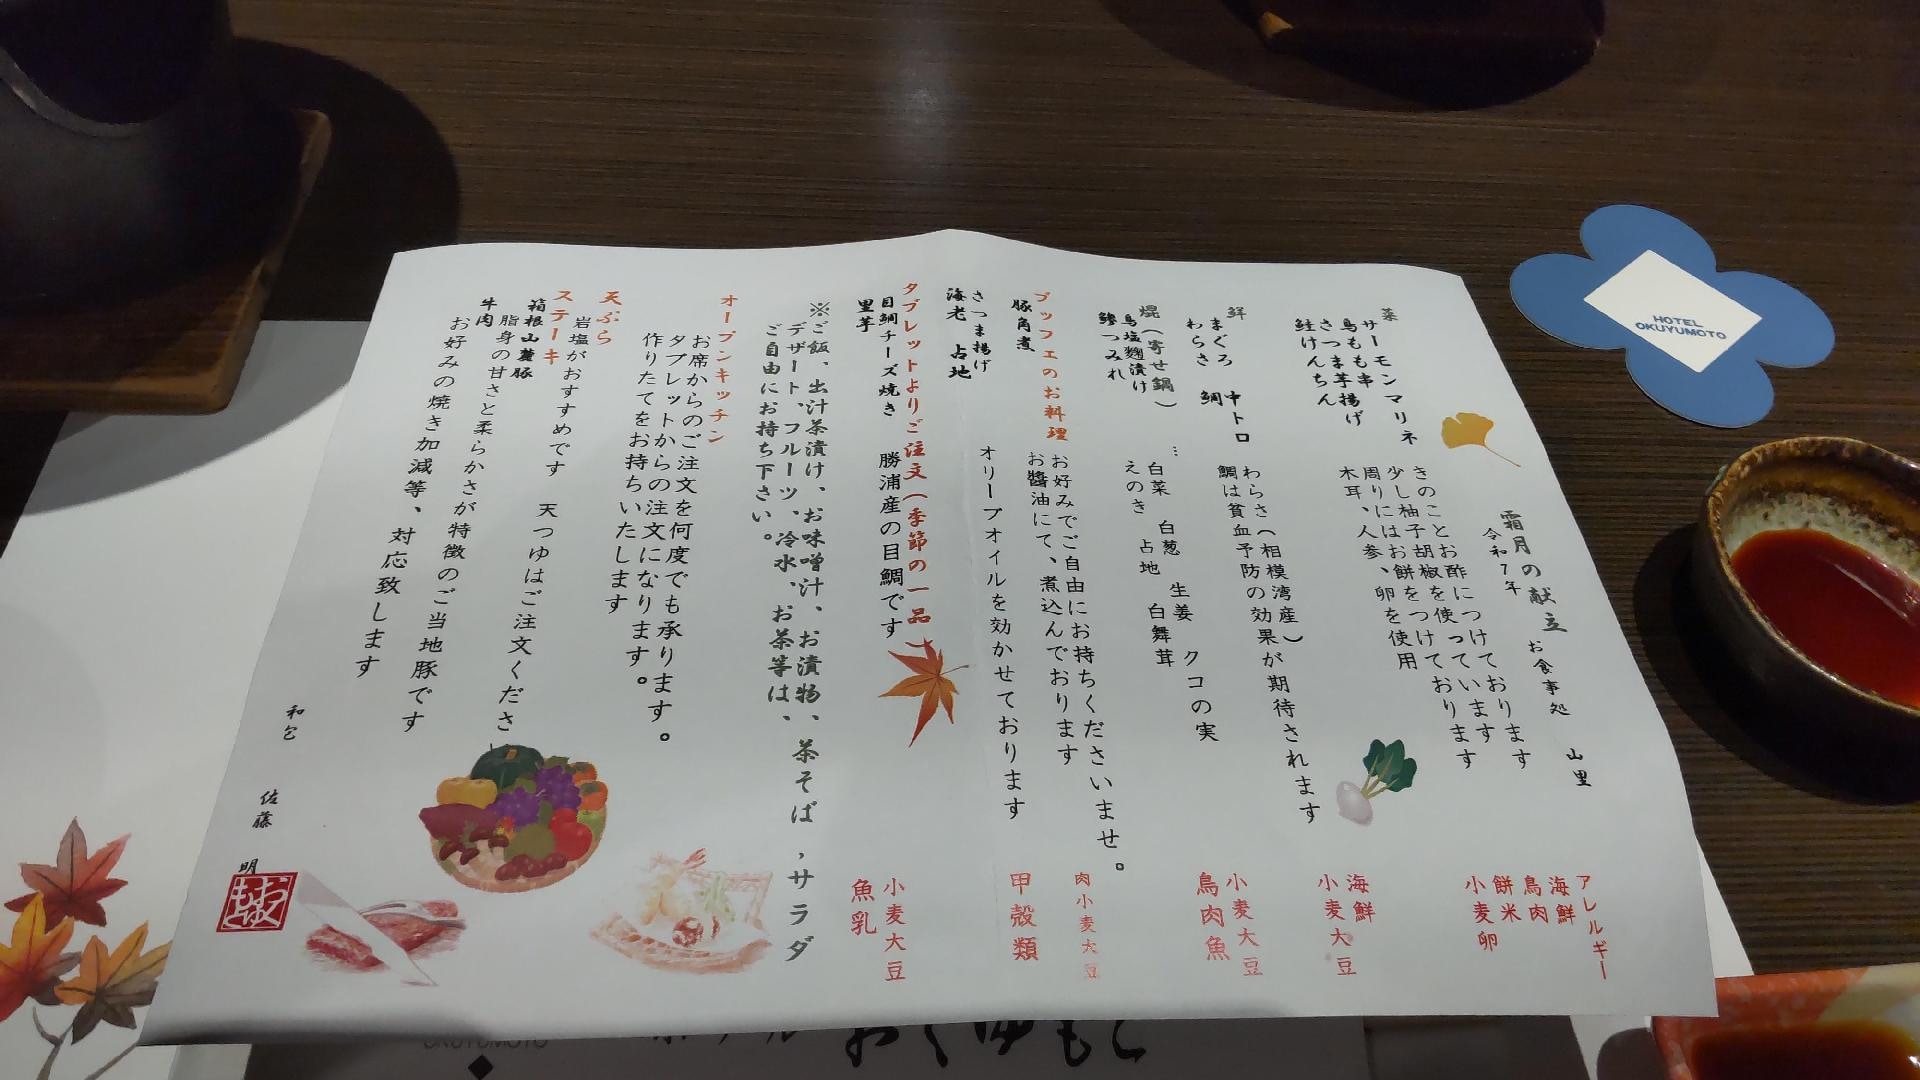 霜月の献立 お食事処 山里
令和7年
菜
サーモンマリネ きのことお酢につけております
鳥もも串 少し柚子胡椒を使っています
さつま芋揚げ 周りにはお餅をつけております
鮭けんちん 木耳、人参、卵を使用
アレルギー
海鮮
鳥肉
餅米
小麦卵
鮮
まぐろ 中トロ わらさ(相模湾産)
わらさ 鯛 鯛は貧血予防の効果が期待されます
海鮮
小麦大豆
焜(寄せ鍋)…
鳥塩麹漬け 白菜 白葱 生姜 クコの実
鰺つみれ えのき 占地 白舞茸
小麦大豆
鳥肉魚
ブッフェのお料理 お好みでご自由にお持ちくださいませ。
豚角煮 お醤油にて、煮込んでおります
さつま揚げ
海老 占地 オリーブオイルを効かせております
肉小麦大豆
甲殻類
タブレットよりご注文(季節の一品)
目鯛チーズ焼き 勝浦産の目鯛です
里芋
小麦大豆
魚乳
※ご飯、出汁茶漬け、お味噌汁、お漬物、茶そば,サラダ
デザート、フルーツ、冷水、お茶等は、
ご自由にお持ち下さい。
オープンキッチン
お席からのご注文を何度でも承ります。
タブレットからの注文になります。
作りたてをお持ちいたします
天ぷら
岩塩がおすすめです 天つゆはご注文くださ
ステーキ
箱根山麓豚
脂身の甘さと柔らかさが特徴のご当地豚です
牛肉
お好みの焼き加減等、対応致します
和包 佐藤 明
おくゆもと
HOTEL
OKUYUMOTO
OKUYUMOTO
おくゆもと